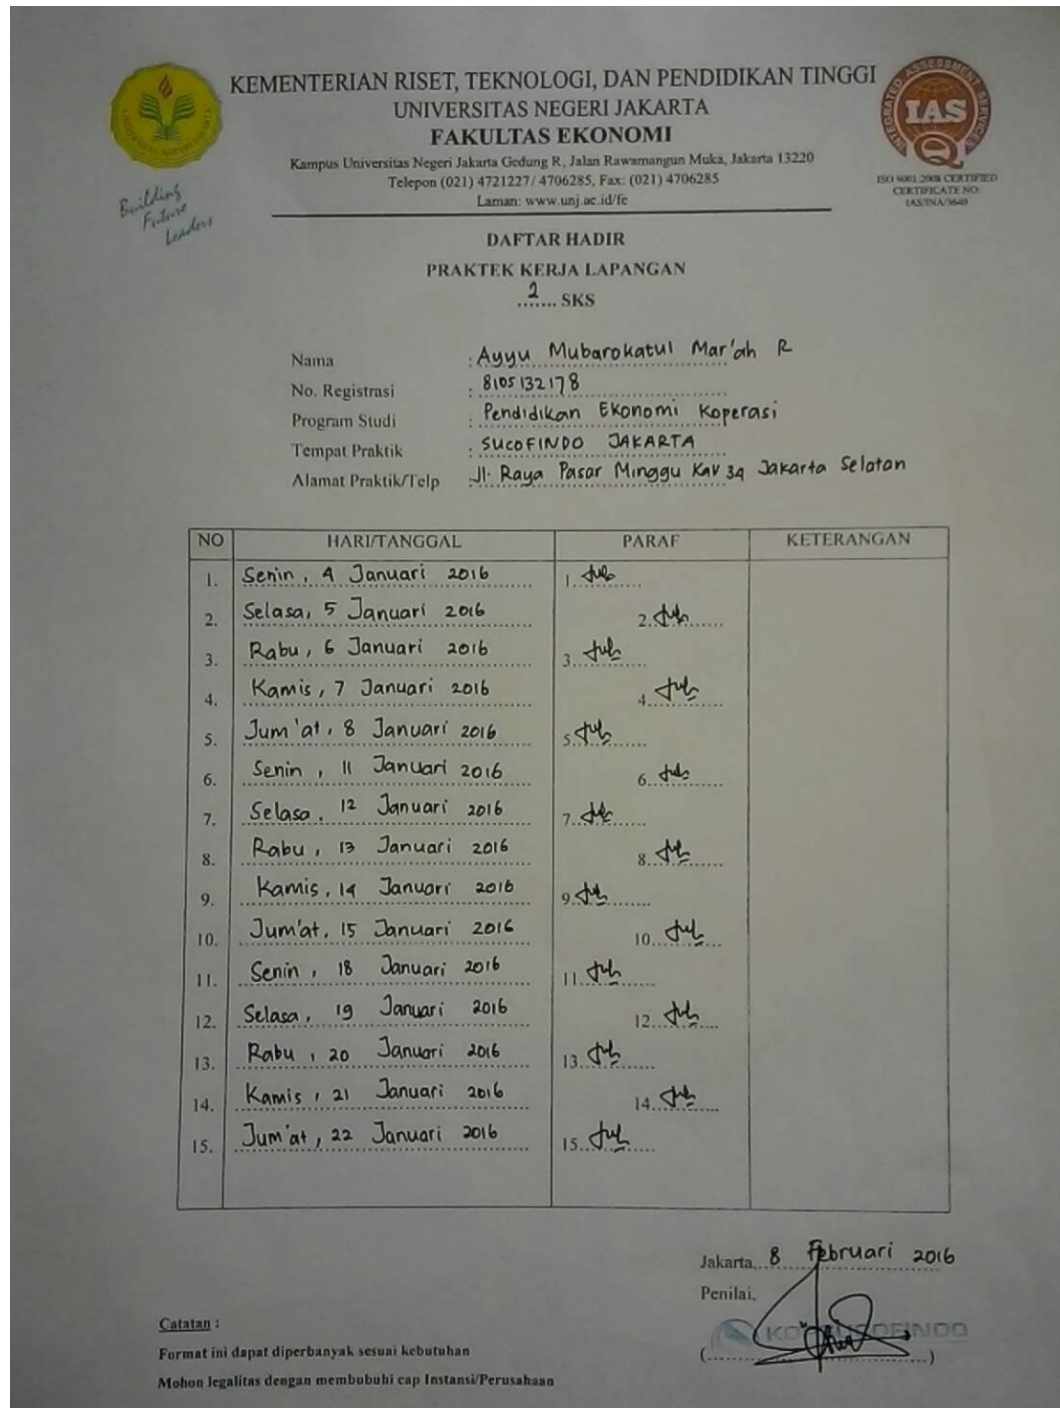 KEMENTERIAN RISET, TEKNOLOGI, DAN PENDIDIKAN TINGGI
UNIVERSITAS NEGERI JAKARTA
FAKULTAS EKONOMI
Kampus Universitas Negeri Jakarta Gedung R, Jalan Rawamangun Muka, Jakarta 13220
Telepon (021) 4721227/ 4706285, Fax: (021) 4706285
Laman: www.unj.ac.id/fe
UNIVERSITAS NEGERI JAKARTA
Building
Future
Leaders
INTEGRATED ASSESSMENT SERVICES
IAS
Q
ISO 9001:2008 CERTIFIED
CERTIFICATE NO:
IAS/INA/3640
DAFTAR HADIR
PRAKTEK KERJA LAPANGAN
2 SKS
Nama : Ayyu Mubarokatul Mar'ah R
No. Registrasi : 8105132178
Program Studi : Pendidikan Ekonomi Koperasi
Tempat Praktik : SUCOFINDO JAKARTA
Alamat Praktik/Telp : Jl. Raya Pasar Minggu Kav 34 Jakarta Selatan
NO HARI/TANGGAL PARAF KETERANGAN
1. Senin, 4 Januari 2016 1.
2. Selasa, 5 Januari 2016 2.
3. Rabu, 6 Januari 2016 3.
4. Kamis, 7 Januari 2016 4.
5. Jum'at, 8 Januari 2016 5.
6. Senin, 11 Januari 2016 6.
7. Selasa, 12 Januari 2016 7.
8. Rabu, 13 Januari 2016 8.
9. Kamis, 14 Januari 2016 9.
10. Jum'at, 15 Januari 2016 10.
11. Senin, 18 Januari 2016 11.
12. Selasa, 19 Januari 2016 12.
13. Rabu, 20 Januari 2016 13.
14. Kamis, 21 Januari 2016 14.
15. Jum'at, 22 Januari 2016 15.
Jakarta, 8 Februari 2016
Penilai,
(....................)
Catatan :
Format ini dapat diperbanyak sesuai kebutuhan
Mohon legalitas dengan membubuhi cap Instansi/Perusahaan